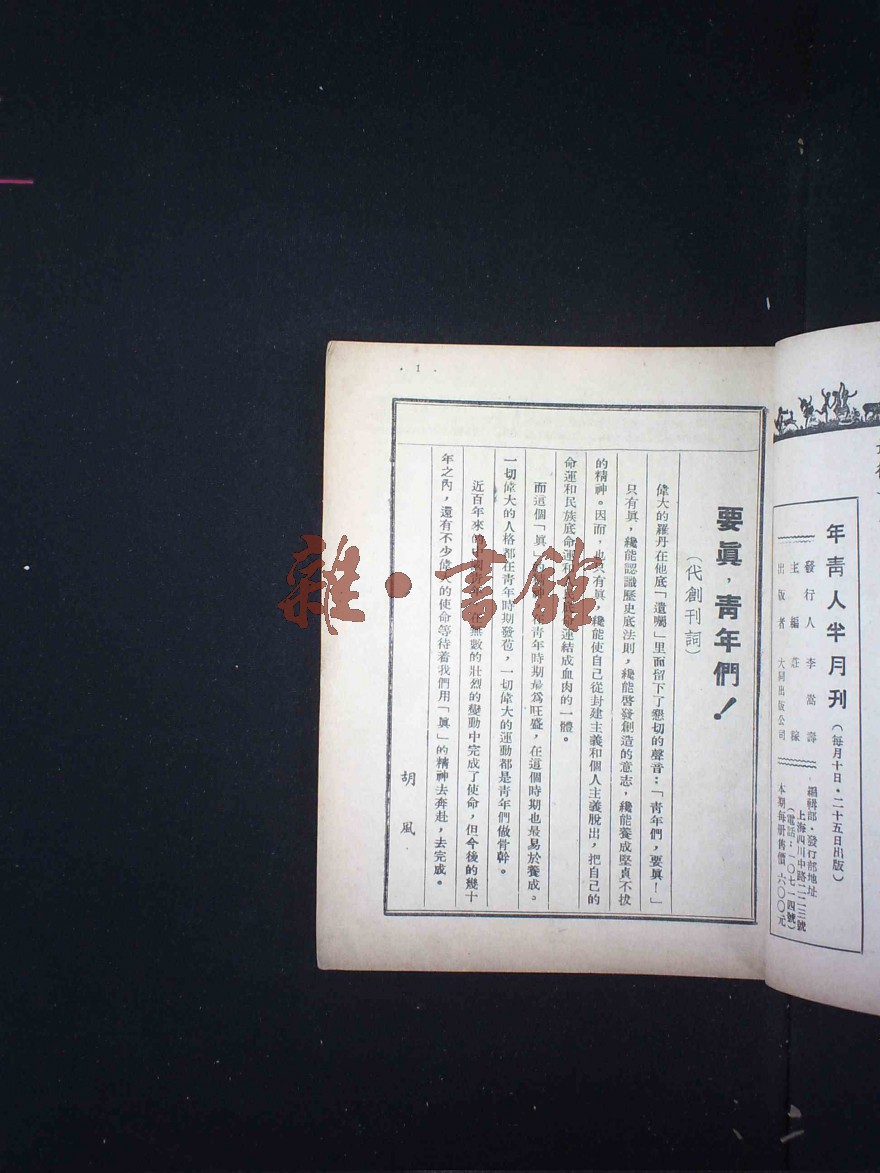 年青人半月刊（每月十日·二十五日出版）
發行人 李嵩壽
主編 莊稼
出版者 大同出版公司
編輯部·發行部地址
上海四川中路二二三號
（電話：一〇七一四號）
本期每册售價 六〇〇元
· 1 ·
要眞，靑年們！
（代創刊詞）
偉大的羅丹在他底「遺囑」里面留下了懇切的聲音：「靑年們，要眞！」
只有眞，纔能認識歷史底法則，纔能啓發創造的意志，纔能養成堅貞不拔
的精神。因而，也只有眞，纔能使自己從封建主義和個人主義脫出，把自己的
命運和民族底命運和底命運連結成血肉的一體。
而這個「眞」的精神，在靑年時期最爲旺盛，在這個時期也最易於養成。
一切偉大的人格都在靑年時期發苞，一切偉大的運動都是靑年們做骨幹。
近百年來的中國靑年，在無數的壯烈的變動中完成了使命，但今後的幾十
年之內，還有不少偉大的使命等待着我們用「眞」的精神去奔赴，去完成。
胡風
雜·書館